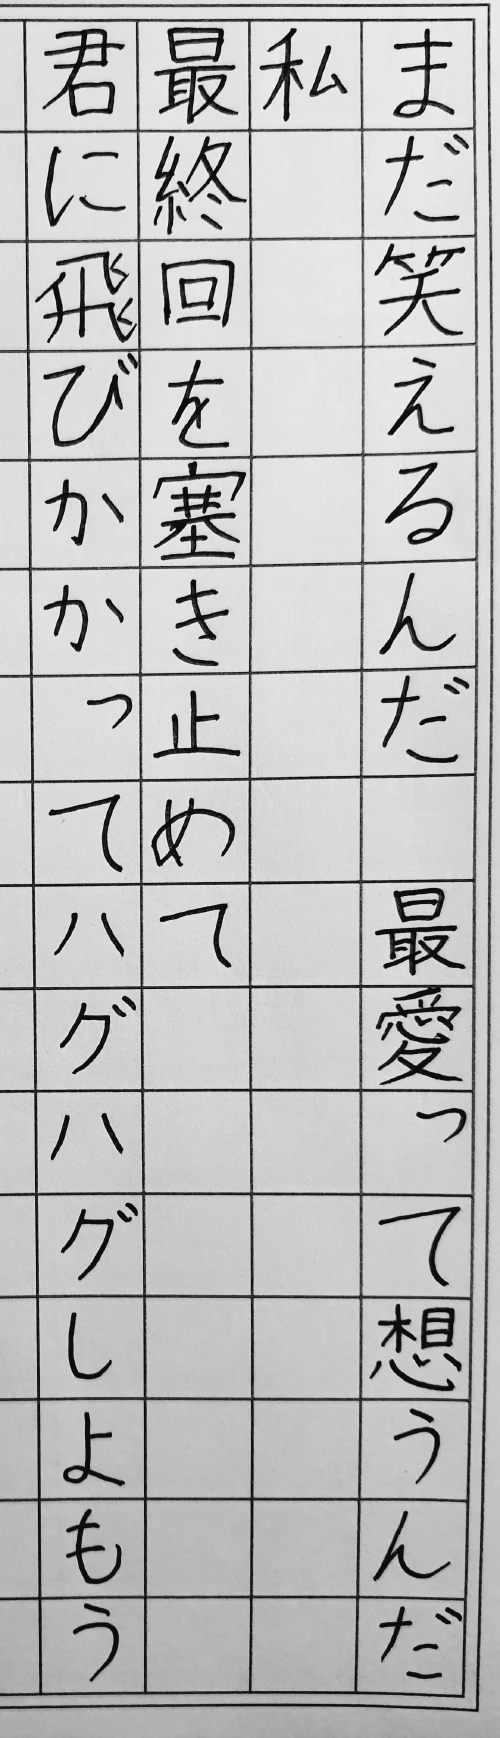 まだ笑えるんだ　最愛って想うんだ
私
最終回を塞き止めて
君に飛びかかってハグハグしよもう